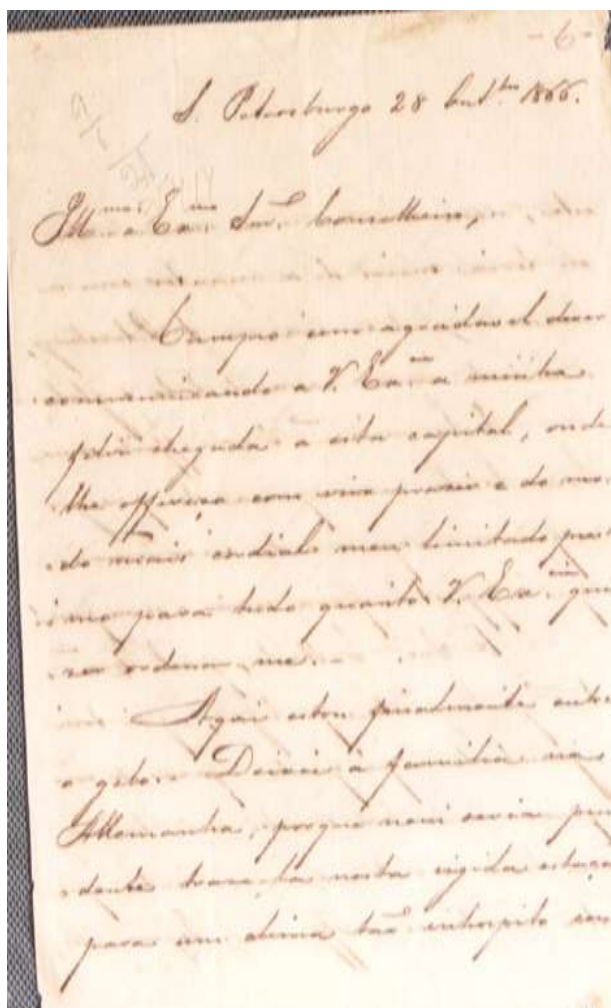 - 6 -
S. Petersburgo 28 1866.
Ill.mo e Ex.mo Snr. Conselheiro,
Cumpro com agradavel dever
communicando a V. Ex.cia a minha
feliz chegada a esta capital, onde
lhe offereço com vivo prazer e do mo
do mais cordial meu limitado pres
timo para tudo quanto V. Ex.cia quei
ra ordenar-me.
Aqui estou finalmente entre
o gelo. Deixei a familia na
Allemanha, porque nem seria pru
dente traze-la nesta rigida estação
para um clima tão inhospito